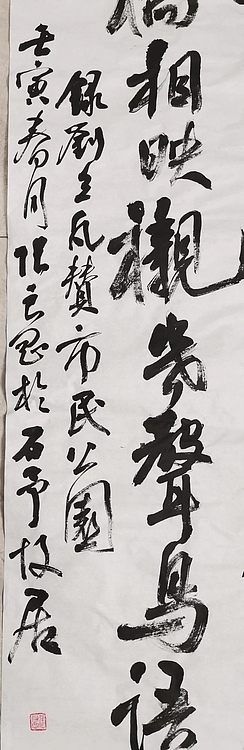 相映襯幾聲鳥語
錄劉立凡贊市民公園
壬寅春月張 於石予故居